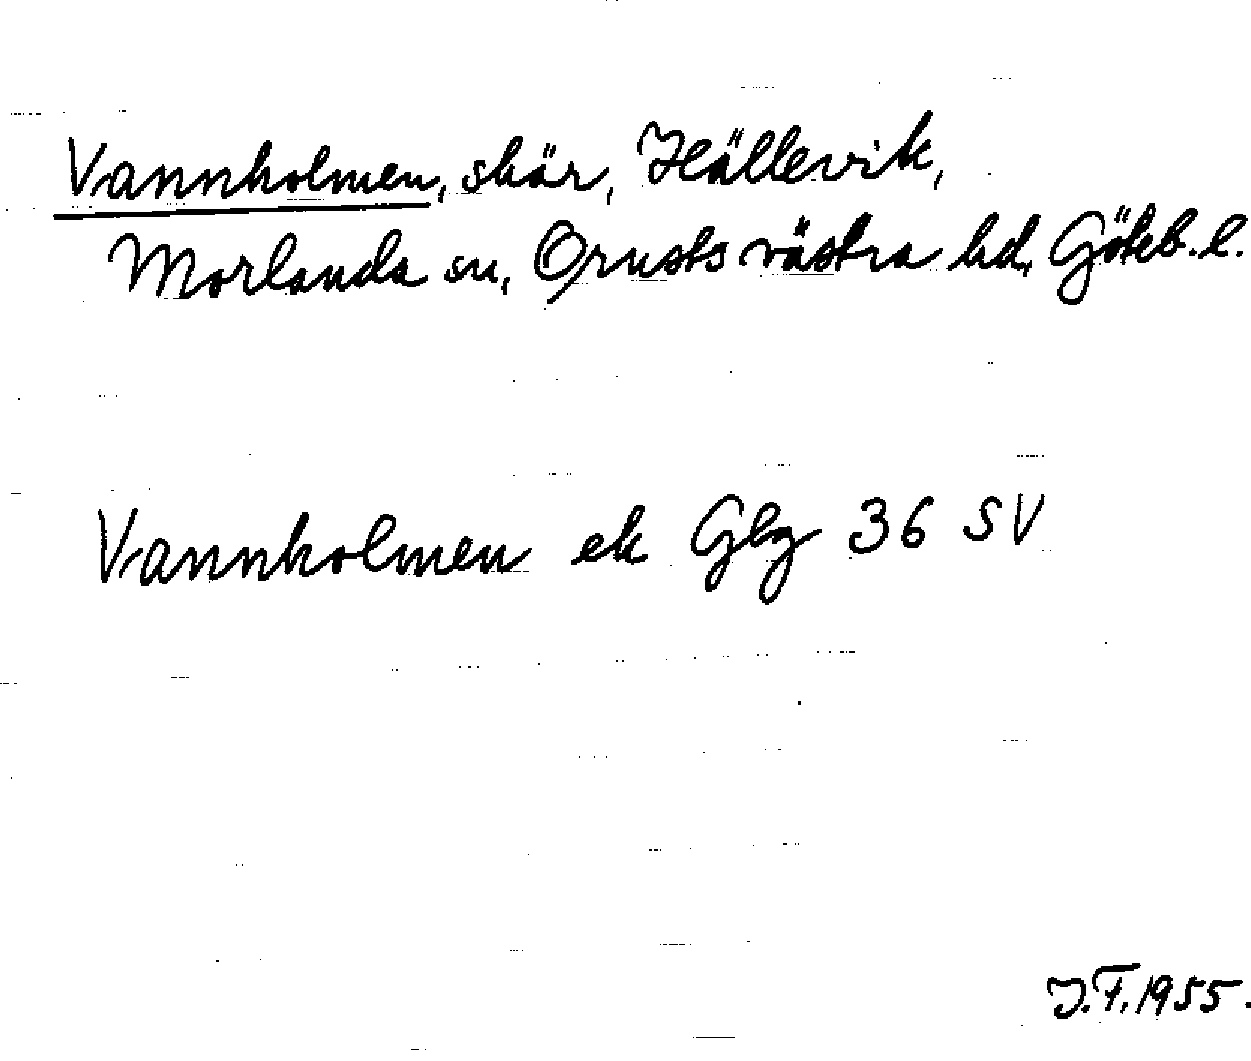 Vannholmen, skär, Hällevik,
Morlanda sn, Orusts västra hd, Göteb. l.
Vannholmen ek Gbg 36 SV
J.F. 1955.